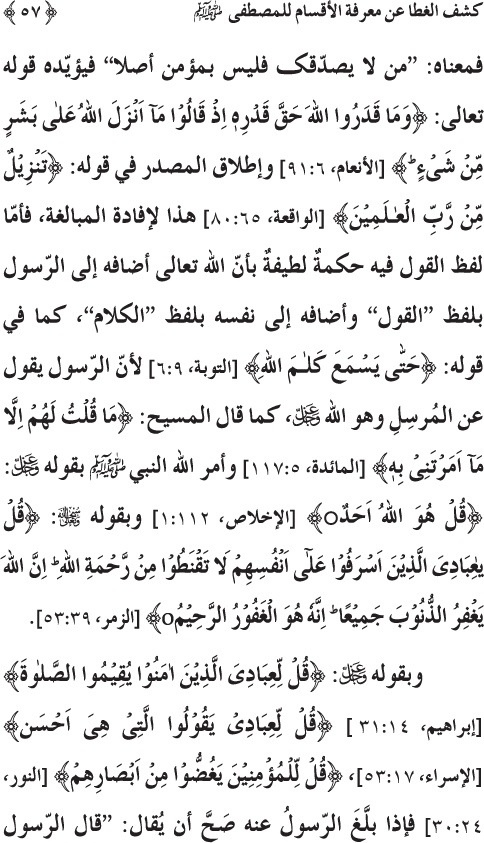 كشف الغطا عن معرفة الأقسام للمصطفى ﷺ ﴿ ٥٧ ﴾
فمعناه: ”من لا يصدّقك فليس بمؤمن أصلا“ فيؤيّده قوله
تعالى: ﴿وَمَا قَدَرُوا اللهَ حَقَّ قَدْرِهٖٓ اِذْ قَالُوْا مَآ اَنْزَلَ اللهُ عَلٰى بَشَرٍ
مِّنْ شَىْءٍ ؕ﴾ [الأنعام، ٩١:٦] وإطلاق المصدر في قوله: ﴿تَنْزِيْلٌ
مِّنْ رَّبِّ الْعٰلَمِيْنَ﴾ [الواقعة، ٨٠:٦٥] هذا لإفادة المبالغة، فأمّا
لفظ القول فيه حكمةٌ لطيفةٌ بأنّ الله تعالى أضافه إلى الرّسول
بلفظ ”القول“ وأضافه إلى نفسه بلفظ ”الكلام“، كما في
قوله: ﴿حَتّٰى يَسْمَعَ كَلٰمَ اللهِ﴾ [التوبة، ٦:٩] لأنّ الرّسول يقول
عن المُرسِل وهو الله ﷻ، كما قال المسيح: ﴿مَا قُلْتُ لَهُمْ اِلَّا
مَآ اَمَرْتَنِىْ بِهٖٓ﴾ [المائدة، ١١٧:٥] وأمر الله النبي ﷺ بقوله ﷻ:
﴿قُلْ هُوَ اللهُ اَحَدٌ○﴾ [الإخلاص، ١:١١٢] وبقوله ﷻ: ﴿قُلْ
يٰعِبَادِىَ الَّذِيْنَ اَسْرَفُوْا عَلٰٓى اَنْفُسِهِمْ لَا تَقْنَطُوْا مِنْ رَّحْمَةِ اللهِ ؕ اِنَّ اللهَ
يَغْفِرُ الذُّنُوْبَ جَمِيْعًا ؕ اِنَّهٗ هُوَ الْغَفُوْرُ الرَّحِيْمُ○﴾ [الزمر، ٥٣:٣٩].
وبقوله ﷻ: ﴿قُلْ لِّعِبَادِىَ الَّذِيْنَ اٰمَنُوْا يُقِيْمُوا الصَّلٰوةَ﴾
[إبراهيم، ٣١:١٤] ﴿قُلْ لِّعِبَادِىْ يَقُوْلُوا الَّتِىْ هِىَ اَحْسَن﴾
[الإسراء، ٥٣:١٧]، ﴿قُلْ لِّلْمُؤْمِنِيْنَ يَغُضُّوْا مِنْ اَبْصَارِهِمْ﴾ [النور،
٣٠:٢٤] فإذا بلَّغَ الرّسولُ عنه صَحَّ أن يُقال: ”قال الرّسول